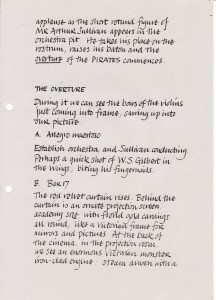 applause as the short rotund figure of
Mr Arthur Sullivan appears in the
orchestra pit. He takes his place on the
rostrum, raises his baton and the
overture of the PIRATES commences.
THE OVERTURE
During it we can see the bows of the violins
just coming into frame, sawing up into
our picture
A. Allegro maestoso
Establish orchestra and Sullivan conducting.
Perhaps a quick shot of W.S Gilbert in
the wings, biting his fingernails.
B. Bar 17
The red velvet curtain rises. Behind the
curtain is an ornate projection screen
academy size, with florid gold carvings
all round, like a Victorian frame for
mirrors and pictures. At the back of
the cinema, in the projection room
we see an enormous Victorian monster
iron-clad engine, steam driven with a